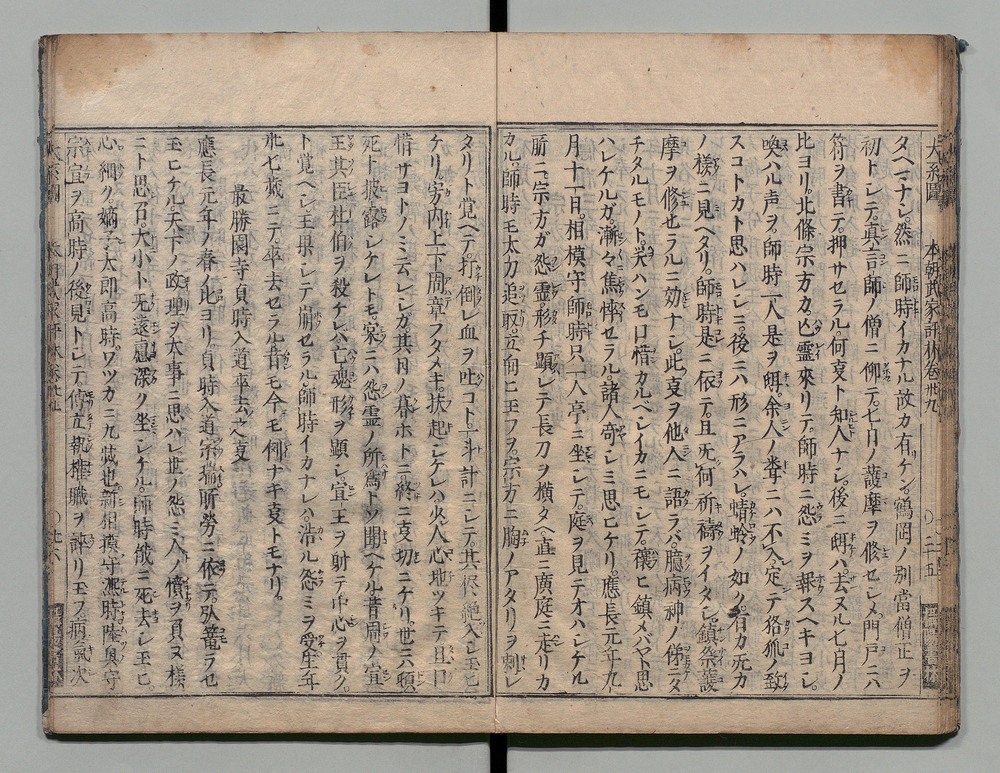 大系圖 本朝武家評林卷卅九 ○二十五
タヘマナシ。然ニ師時イカナル故カ有ケン。鶴岡ノ別當僧正ヲ
初トシテ。真言師ノ僧ニ仰テ。七月ノ護摩ヲ修セシメ門戸ニハ
符ヲ書テ。押サセラル何支ト知人ナシ。後ニ聞ハ去ヌル七月ノ
比ヨリ。北條宗方カ亡靈來リテ。師時ニ怨ミヲ報スヘキヨシ。
喚ハル声ヲ。師時一人是ヲ聞。余人ノ耳ニハ不入定テ狢狐ノ致
スコトカト思ハレシニ。後ニハ形ニアラハレ。蜻蛉ノ如ク有カ无カ
ノ様ニ見ヘタリ。師時是ニ依テ。且ハ何祈禱ヲイタシ。鎮祭護
摩ヲ修セラルニ効ナシ。此支ヲ他人ニ語ラバ。臆病神ノ俤ニタ
チタルモノト。笑ハンモ口惜カルベシイカニモシテ。禳ヒ鎮メバヤト思
ハレケルガ。漸々焦悴セラル諸人奇シミ思ヒケリ。應長元年九
月十一日。相模守師時只一人亭ニ坐シテ。庭ヲ見テオハシケル
所ニ。宗方ガ怨靈。形チ顕レテ長刀ヲ横タヘ直ニ廣庭ニ走リカ
カル。師時モ太刀追取。立向ヒ玉フヲ。宗方ニ胸ノアタリヲ刺レ
タリト覚ヘテ。打倒レ血ヲ吐コト。一斗計ニシテ。其侭絶入シ玉ヒ
ケリ。家内上下周章フタメキ。扶起シケレハ少人心地ツキテ且口
惜サヨトノミ云レシガ。其日ノ暮ホトニ終ニ支切ニケリ。世ニハ頓
死ト披露シケレトモ。実ニハ怨霊ノ所爲トゾ聞ヘケル昔周ノ宣
王其臣杜伯ヲ殺ケレハ亡魂形ヲ顕シ。宣王ヲ射テ中心ヲ貫ク。
ト覚ヘシ王果シテ崩セラル師時イカナレハ浩ル怨ミヲ受生年
卅七歳ニテ。卒去セラル昔モ今モ例ナキ支トモナリ。
最勝園寺貞時入道卒去之支
應長元年ノ春ノ比ヨリ。貞時入道宗瑞所勞ニ依テ。引籠ラセ
玉ヒケル天下ノ政理ヲ大事ニ思ハレ世ノ怨ミ人ノ憤ヲ負ヌ様
ニト思召。大小ト无遠慮深ク坐シケル。師時俄ニ死去シ玉ヒ。
心細ク。嫡子太郎高時ワツカニ九歳也新相模守凞時陸奥守
宗宣ヲ高時ノ後見トシテ。傅立執權職ヲ評リ玉フ病氣次